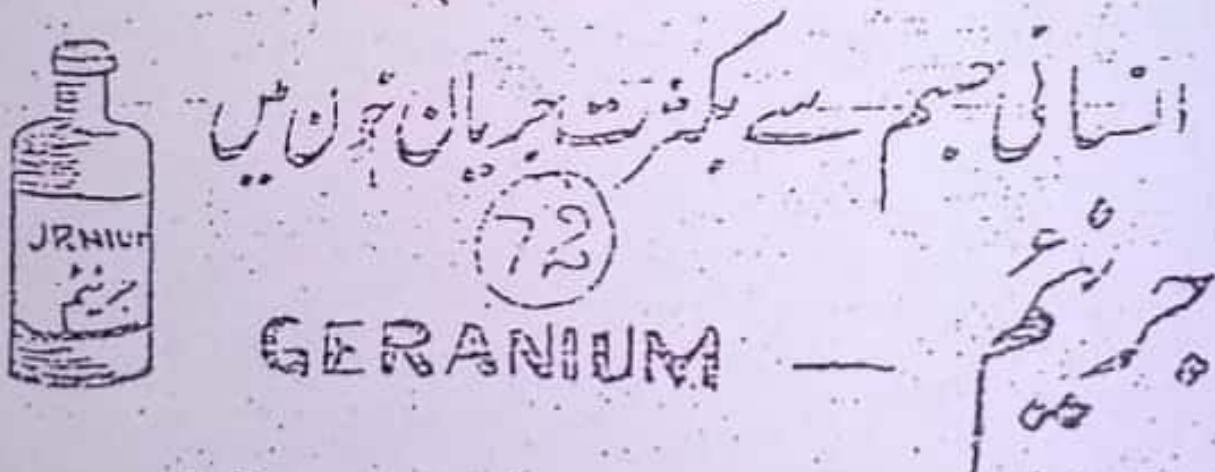 انسانی جسم سے بکثرت جریان خون میں
72
GERANIUM — جرینیم
JRNIUM